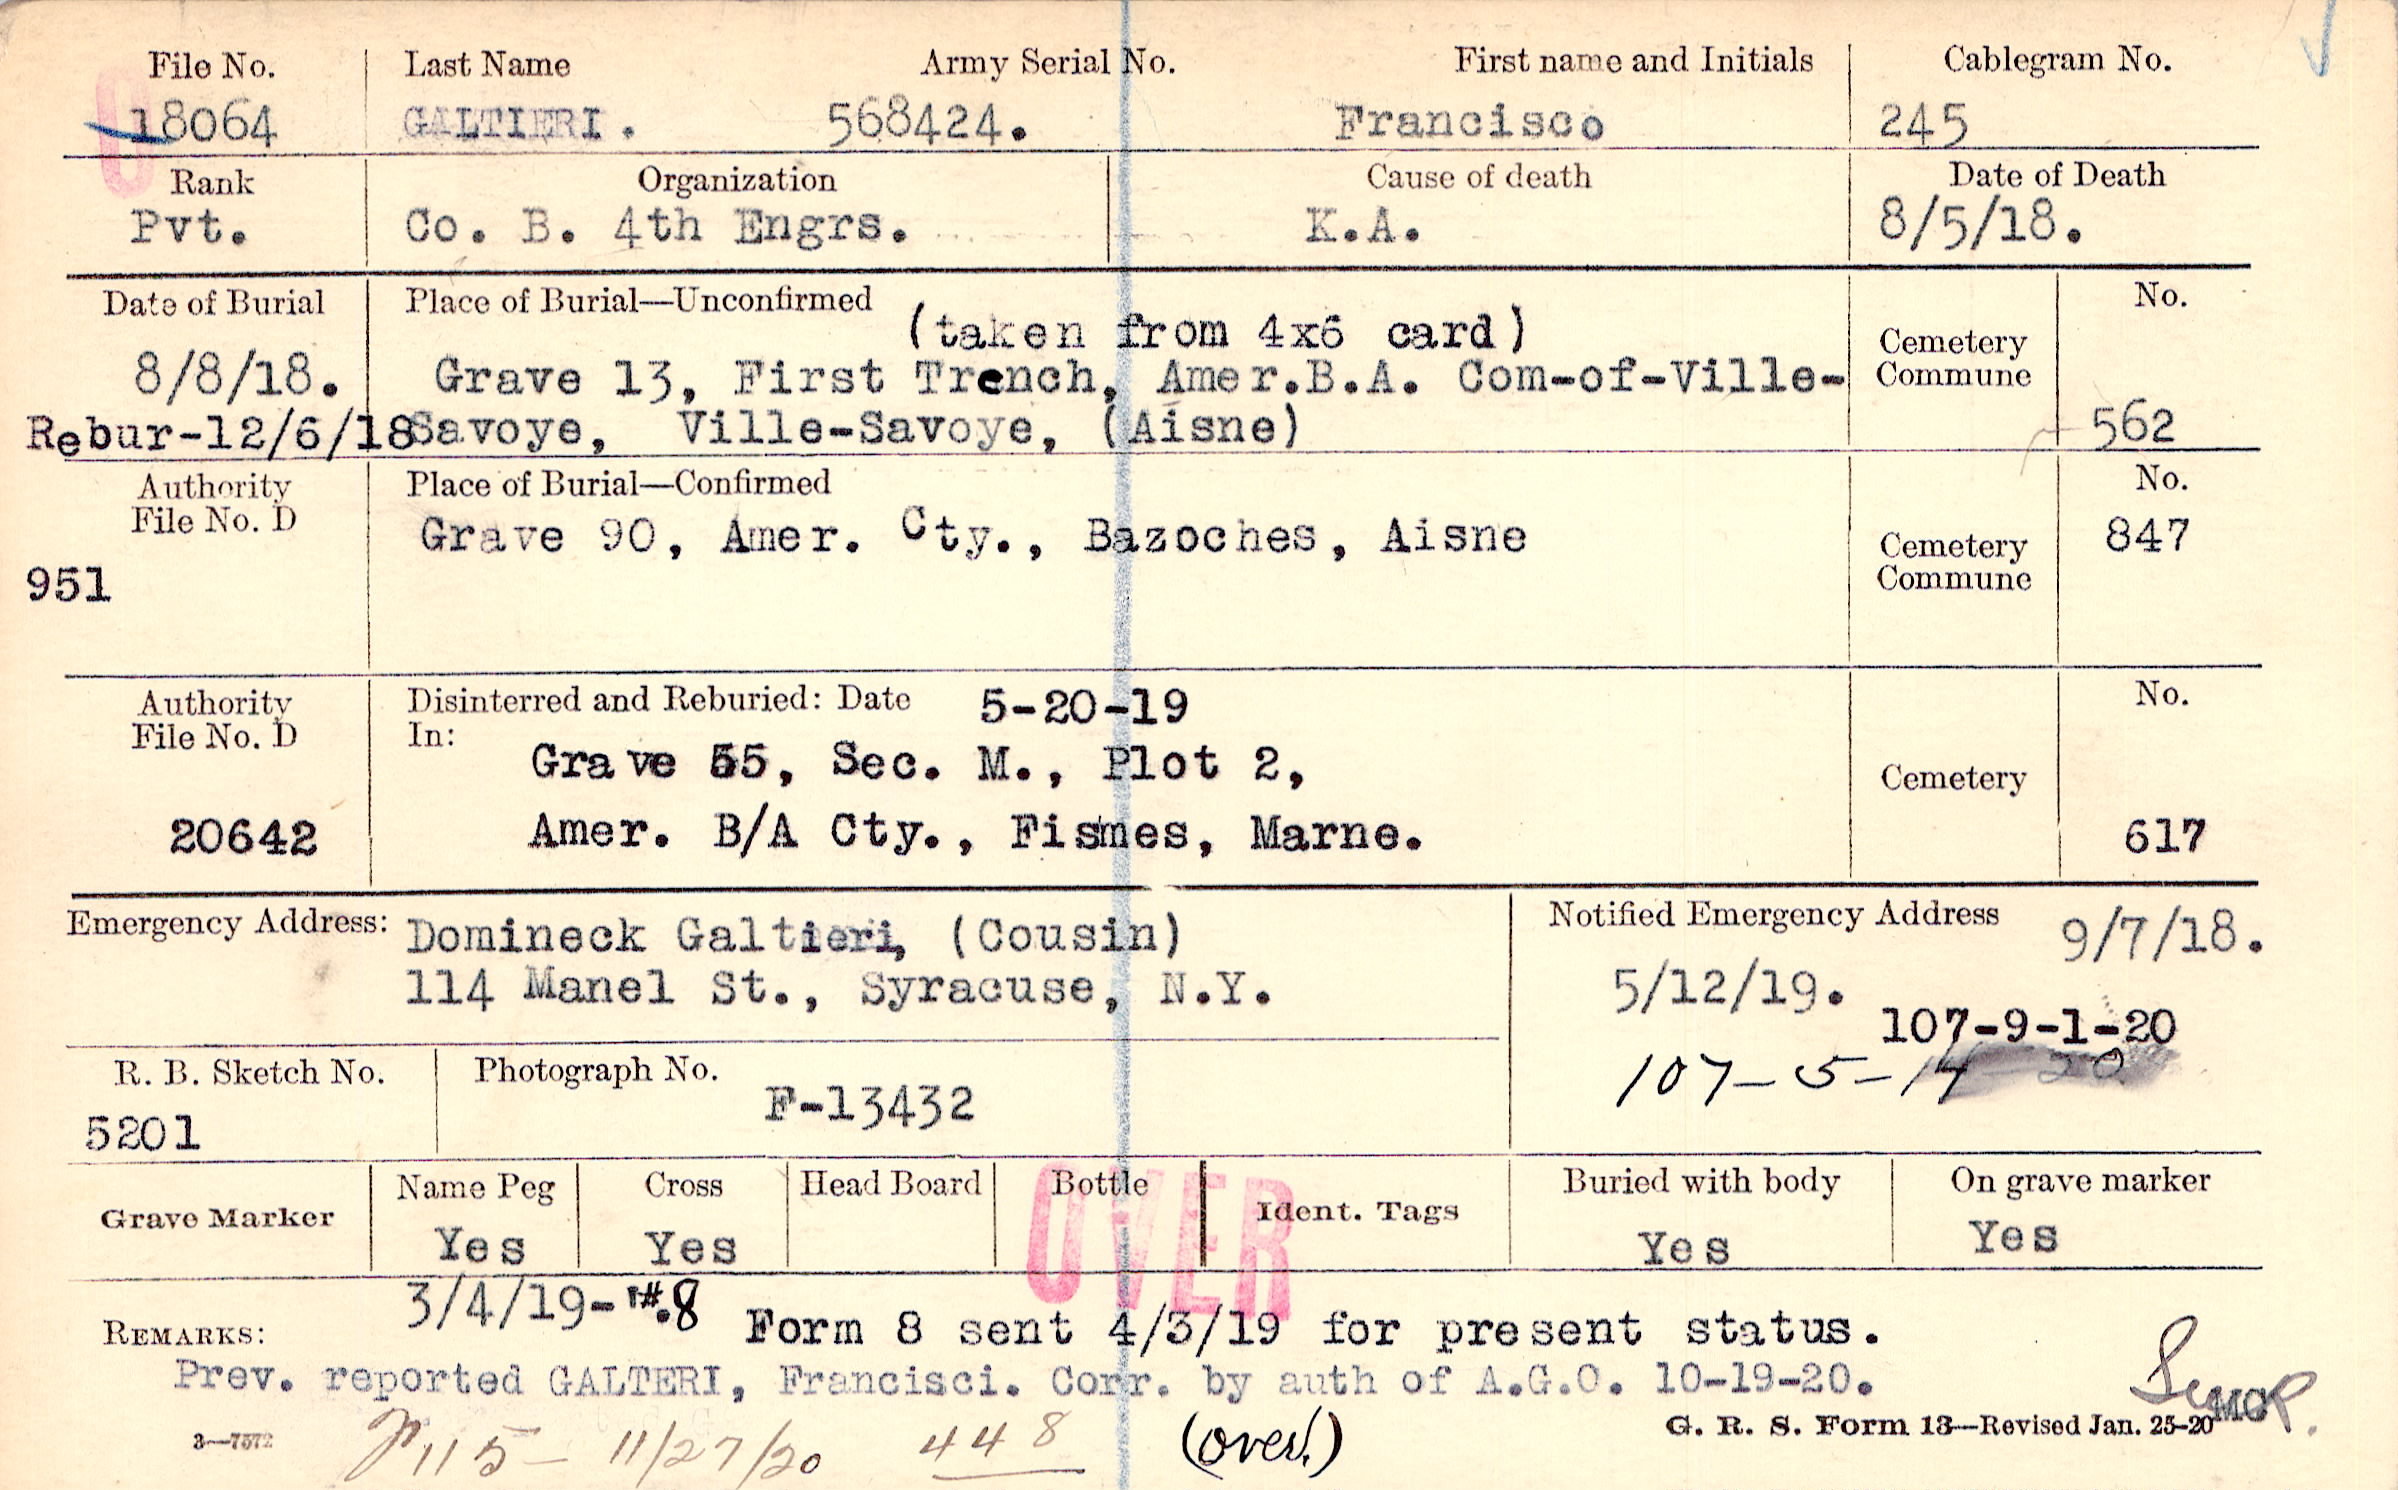 File No. Last Name Army Serial No. First name and Initials Cablegram No.
18064 GALTIERI. 568424. Francisco 245
Rank Organization Cause of death Date of Death
Pvt. Co. B. 4th Engrs. K.A. 8/5/18.
Date of Burial Place of Burial—Unconfirmed No.
(taken from 4x6 card)
8/8/18. Grave 13, First Trench, Amer.B.A. Com-of-Ville- Cemetery Commune
Rebur-12/6/18 Savoye, Ville-Savoye, (Aisne) 562
Authority Place of Burial—Confirmed No.
File No. D Grave 90, Amer. Cty., Bazoches, Aisne Cemetery 847
951 Commune
Authority Disinterred and Reburied: Date 5-20-19 No.
File No. D In:
Grave 55, Sec. M., Plot 2, Cemetery
20642 Amer. B/A Cty., Fismes, Marne. 617
Emergency Address: Domineck Galtieri, (Cousin) Notified Emergency Address 9/7/18.
114 Manel St., Syracuse, N.Y. 5/12/19.
107-9-1-20
R. B. Sketch No. Photograph No. 107-5-14 20
5201 F-13432
Grave Marker Name Peg Cross Head Board Bottle Ident. Tags Buried with body On grave marker
Yes Yes Yes Yes
OVER
3/4/19-#.8
REMARKS: Form 8 sent 4/3/19 for present status.
Prev. reported GALTERI, Francisci. Corr. by auth of A.G.O. 10-19-20.
3—7572 115- 11/27/20 448 (over.) G. R. S. Form 13—Revised Jan. 25-20 MCP